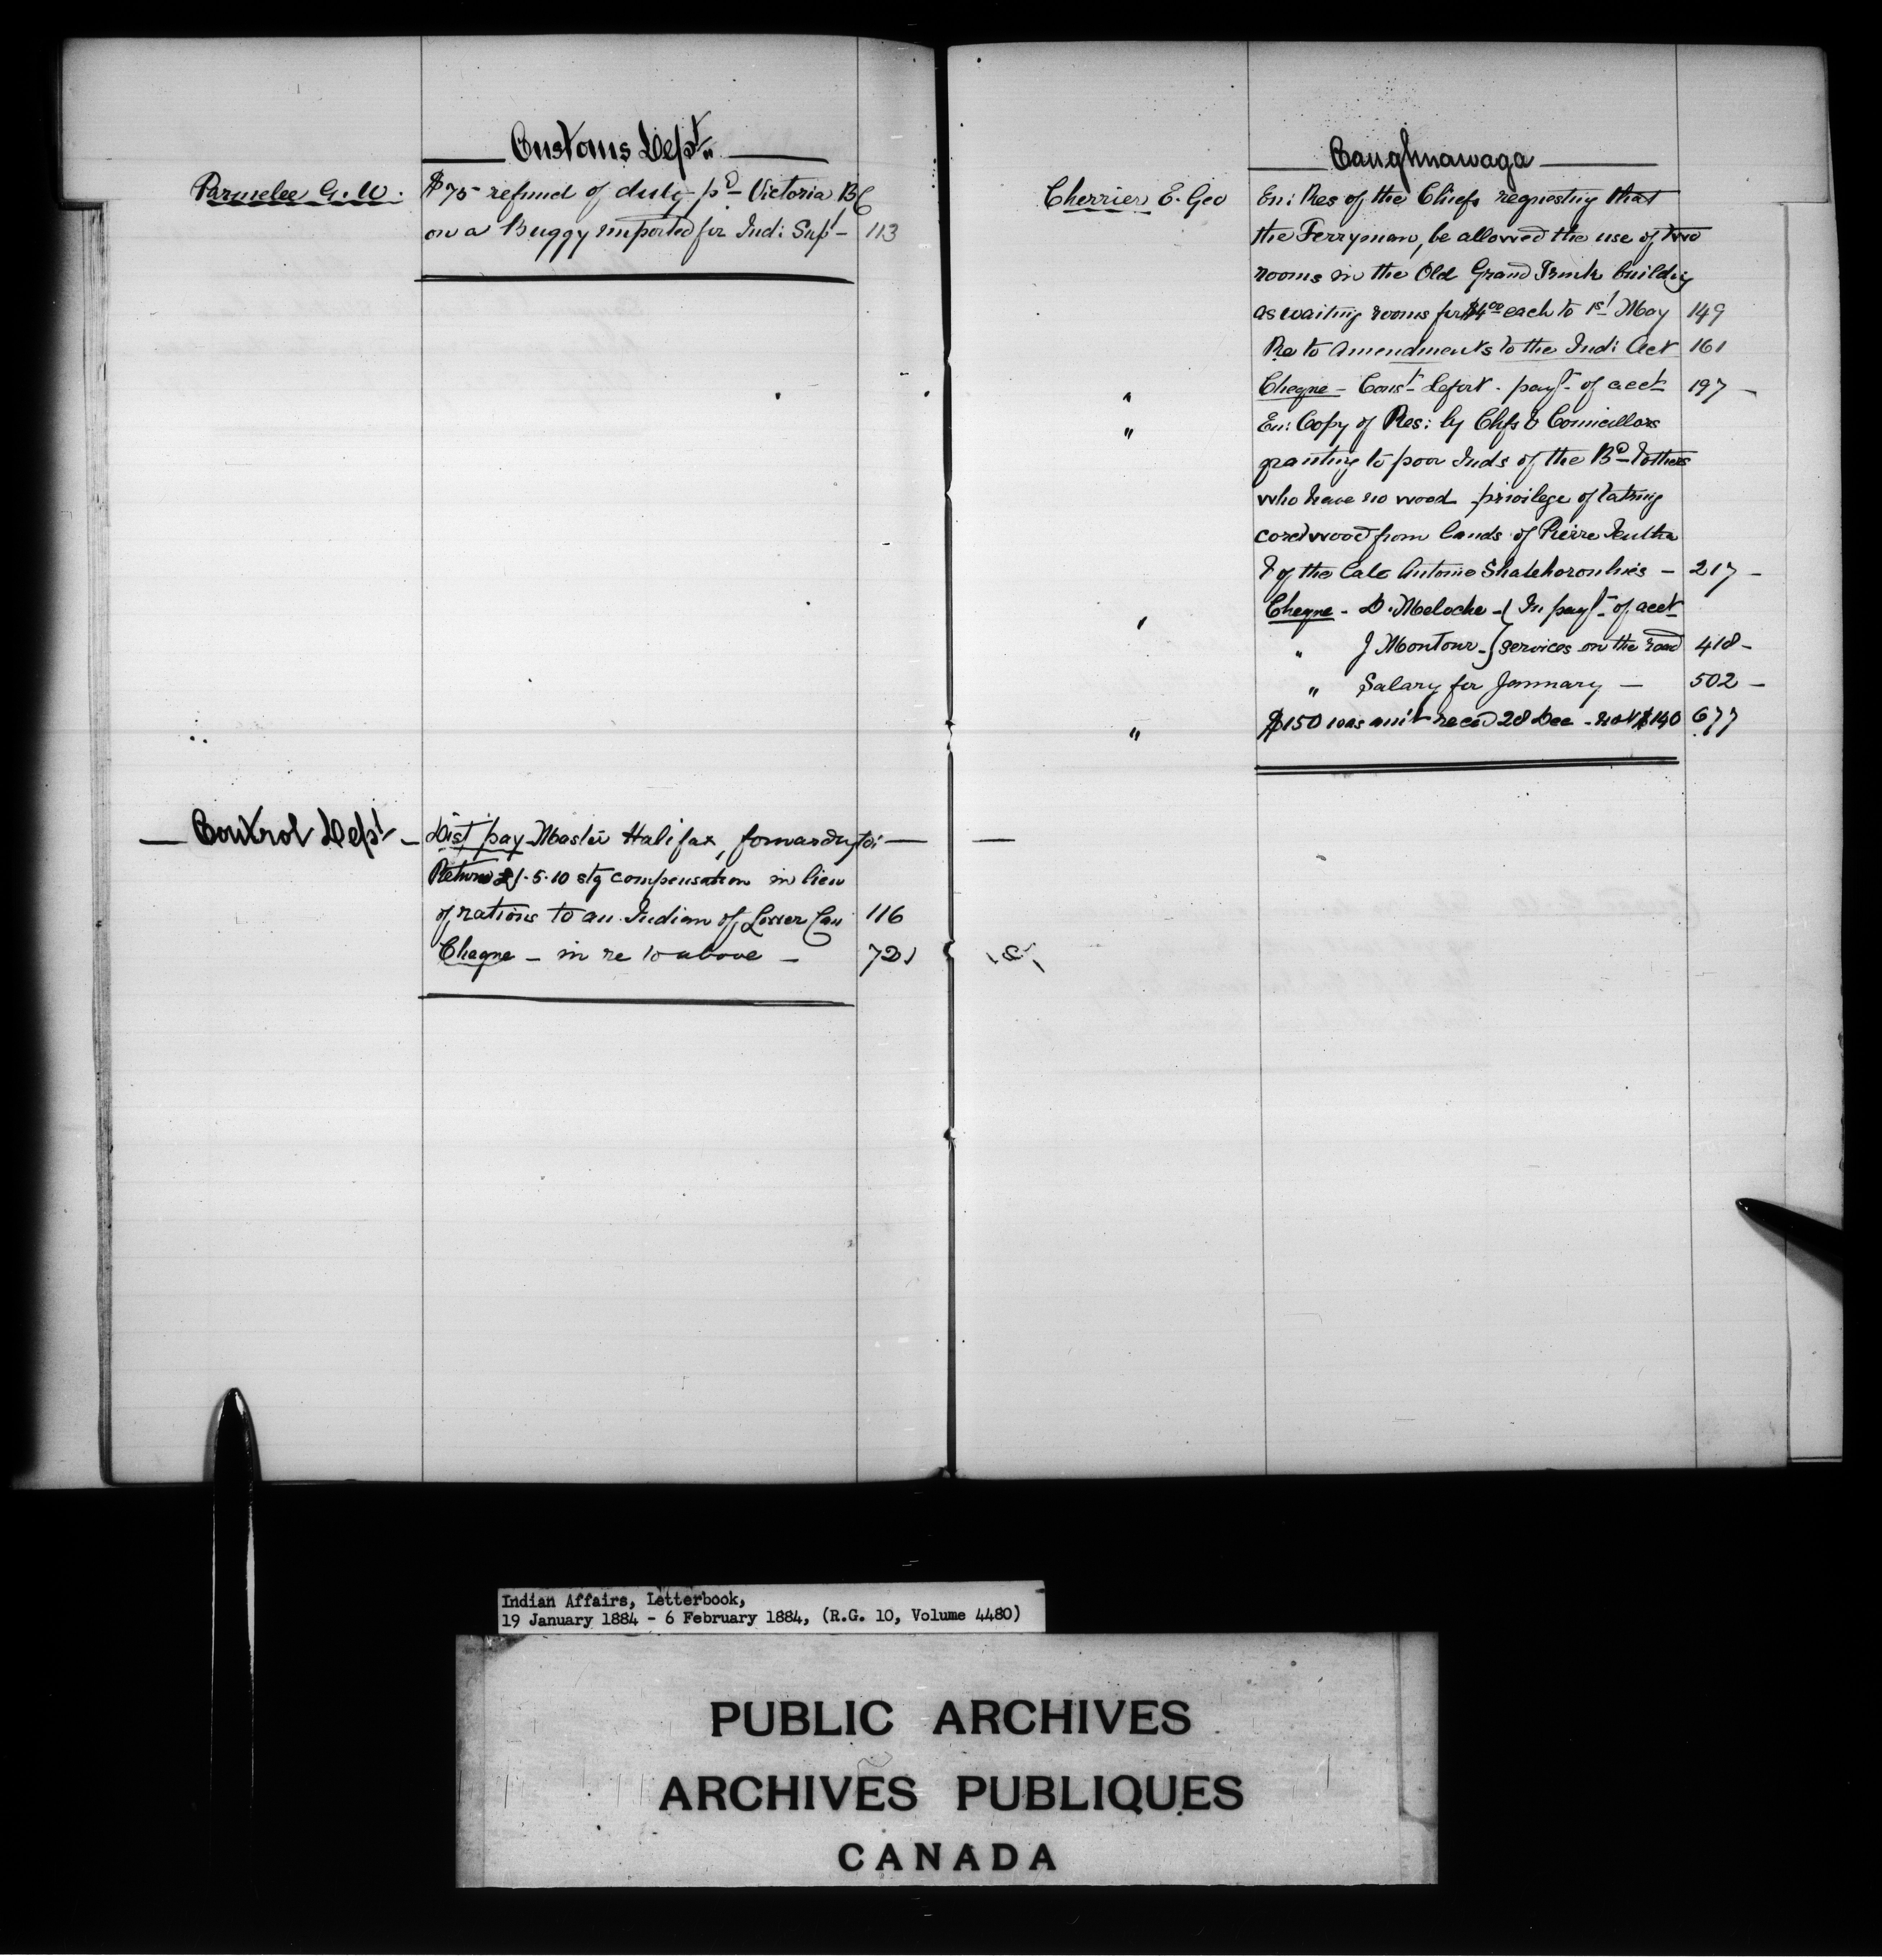 Customs Dept.
Parmelee G. W. $75 refund of duty pd Victoria BC
on a Buggy imported for Ind: Supt - 113
Control Dept - Dist pay Master Halifax, forwardg to: -
Return £1.5.10 stg compensation in lieu
of rations to an Indian of Lower Can 116
Cheque - in re to above - 721
Caughnawaga
Cherrier E. Geo En: Res of the Chiefs requesting that
the Ferryman, be allowed the use of two
rooms in the Old Grand Trunk building
as waiting rooms for $4.00 each to 1st May 149
Re to Amendments to the Ind: Act 161
" Cheque - Const Lefort - payt of acct 197 -
" En: Copy of Res: by Chfs & Councillors
granting to poor Inds of the Bd & others
who have no wood privilege of taking
cordwood from lands of Pierre
& of the late Antoine - 217 -
" Cheque - D. Meloche - { In payt of acct
" J Montour - } services on the road 418 -
" Salary for January - 502 -
" $150 was amt recd 28 Dec - not $140 677
Indian Affairs, Letterbook,
19 January 1884 - 6 February 1884, (R.G. 10, Volume 4480)
PUBLIC ARCHIVES
ARCHIVES PUBLIQUES
CANADA